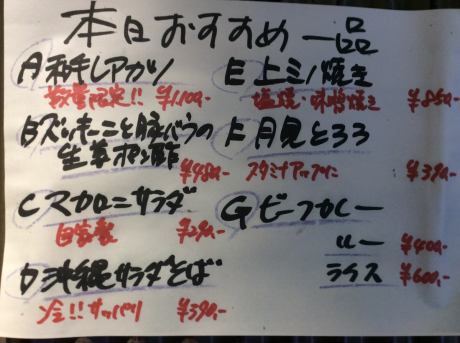 本日おすすめ一品
A 和牛レアカツ
数量限定!! ¥1,100-
B ズッキーニと豚バラの
生姜ポン酢 ¥480-
C マカロニサラダ
自家製 ¥290-
D 沖縄サラダそば
冷!! サッパリ ¥390-
E 上ミノ焼き
塩焼・味噌焼き ¥850-
F 月見とろろ
スタミナアップに ¥390-
G ビーフカレー
ルー ¥400-
ライス ¥600-